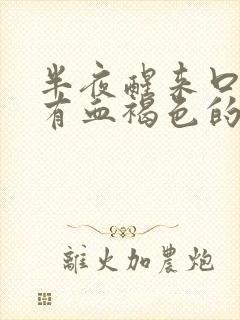 半夜醒来口
有血褐色的
離火加農炮